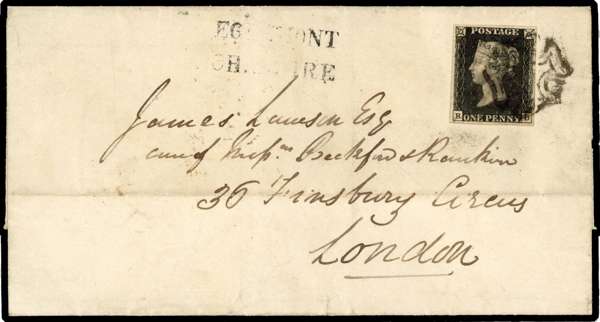 EG MONT
CH RE
POSTAGE
ONE PENNY
James Lawson Esq
care of Mess.rs Beckford & Rankin
36 Finsbury Circus
London